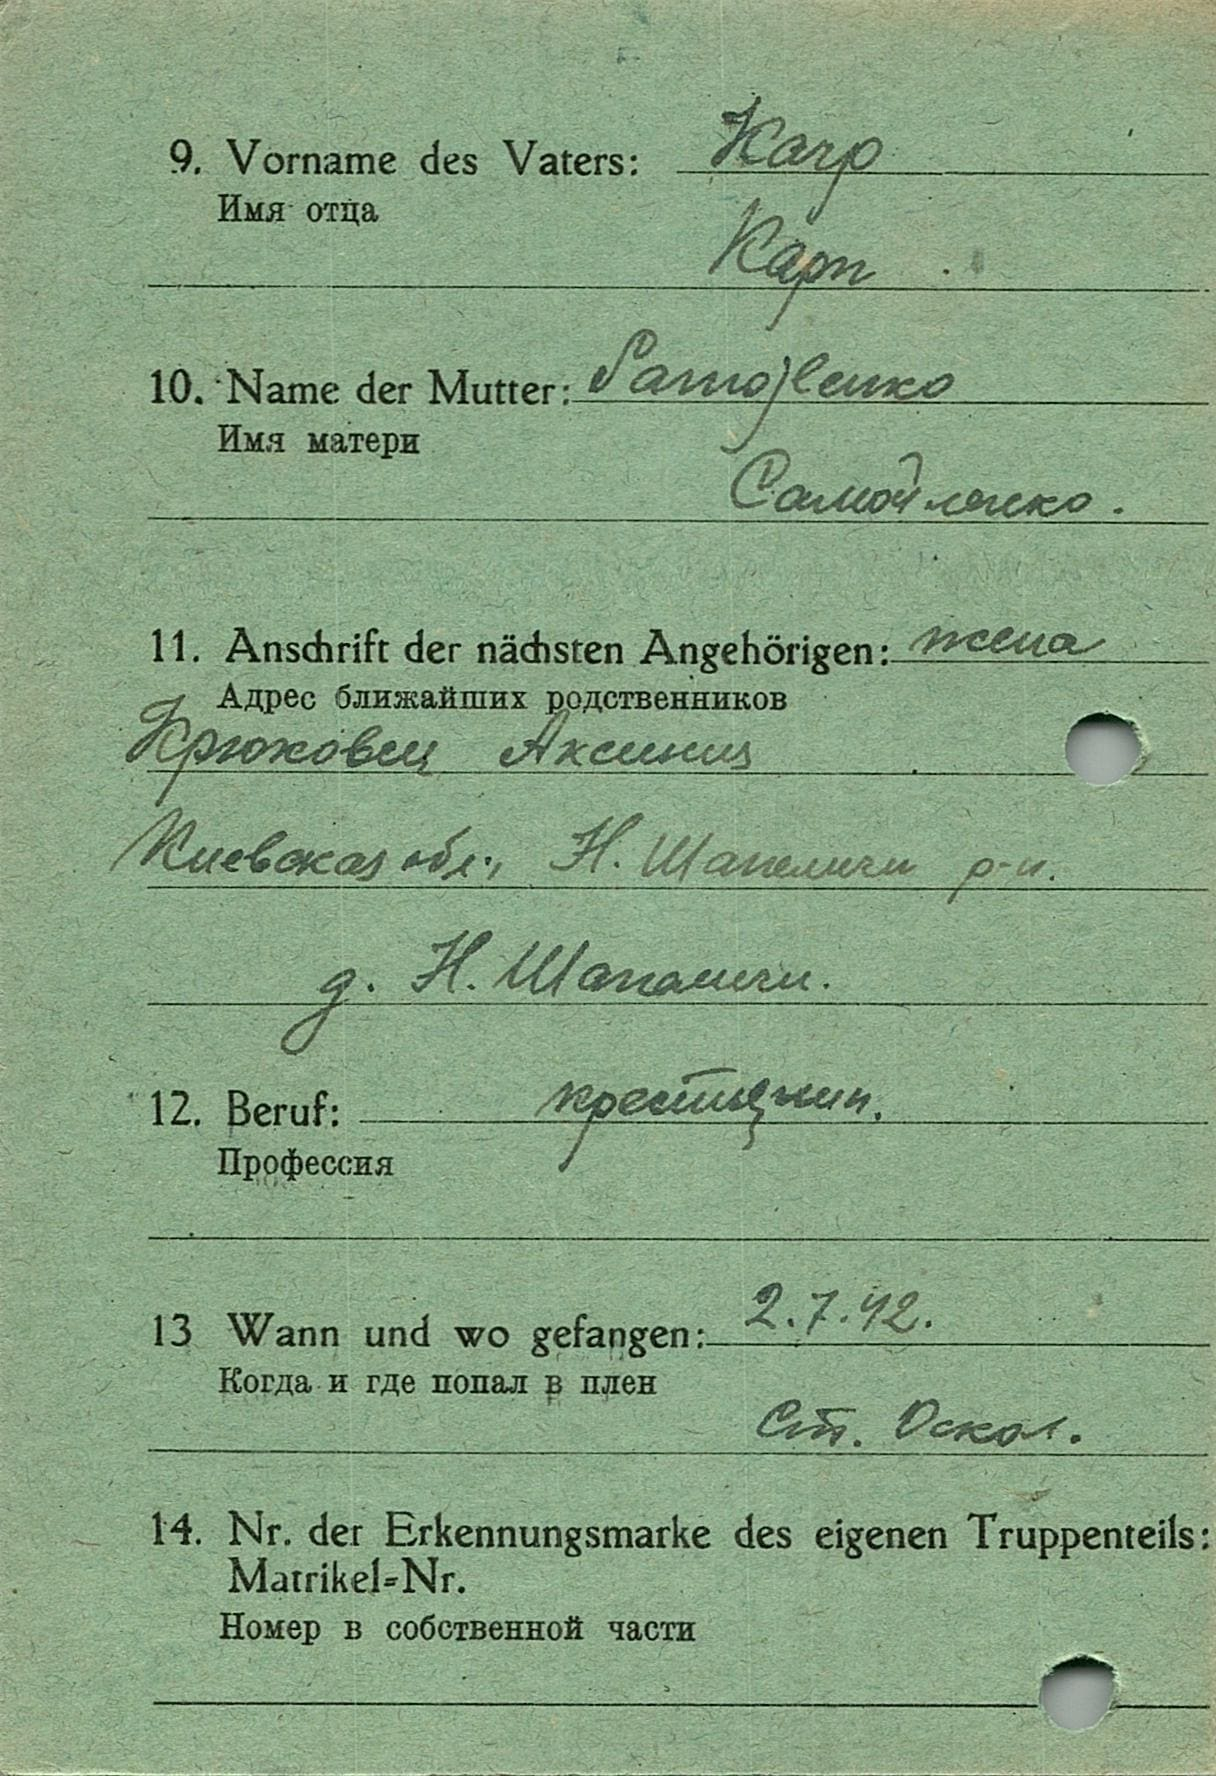 9. Vorname des Vaters: Karp
Имя отца
Карп
10. Name der Mutter: Samojlenko
Имя матери
Самойленко.
11. Anschrift der nächsten Angehörigen: жена
Адрес ближайших родственников
Крюковец Аксиния
Киевская обл., Н. Шапеличи р-н.
д. Н. Шапеличи.
12. Beruf: крестьянин.
Профессия
13 Wann und wo gefangen: 2.7.42.
Когда и где попал в плен
Ст. Оскол.
14. Nr. der Erkennungsmarke des eigenen Truppenteils:
Matrikel=Nr.
Номер в собственной части